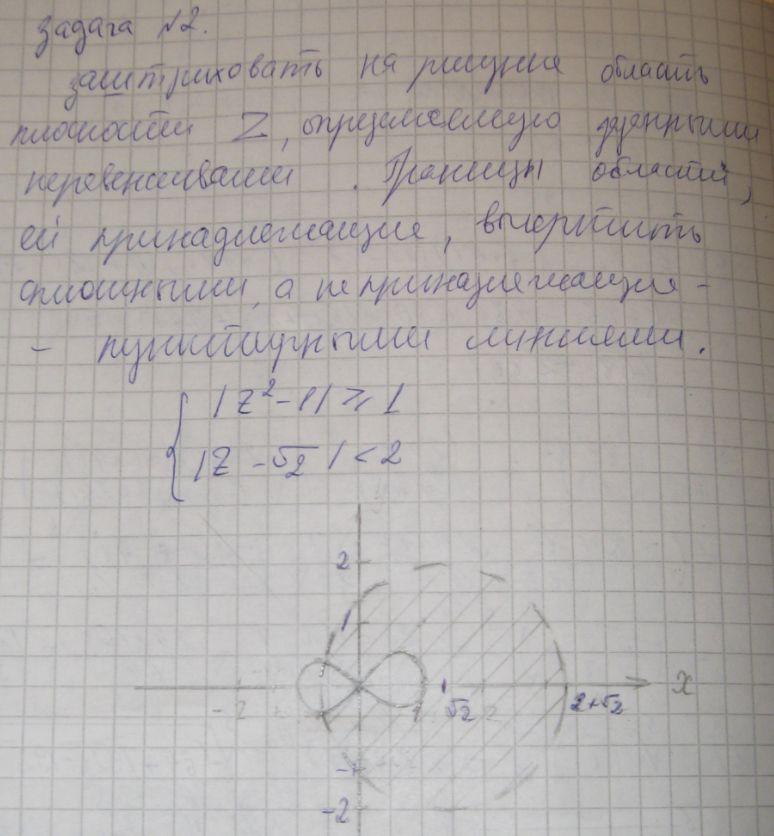 Задача №2.
Заштриховать на рисунке область
плоскости Z, определяемую данными
неравенствами. Границы области,
ей принадлежащие, вычертить
сплошными, а не принадлежащие -
- пунктирными линиями.
|Z²-1| ≥ 1
|Z - √2| < 2
y
2
1
-2 1 √2 2 2+√2 x
-1
-2